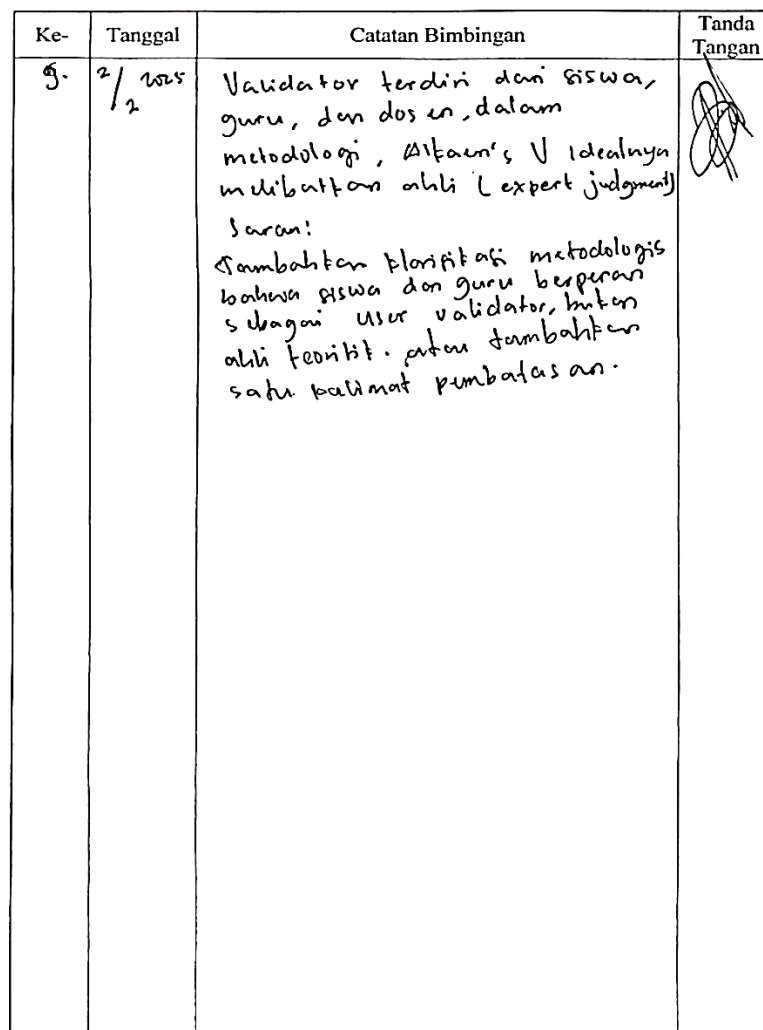 Ke-
Tanggal
Catatan Bimbingan
Tanda
Tangan
9.
2/2 2025
Validator terdiri dari siswa,
guru, dan dosen, dalam
metodologi, Aikaen's V idealnya
melibatkan ahli (expert judgment)
Saran:
Tambahkan klarifikasi metodologis
bahwa siswa dan guru berperan
sebagai user validator, bukan
ahli teoritik. atau tambahkan
satu kalimat pembatasan.